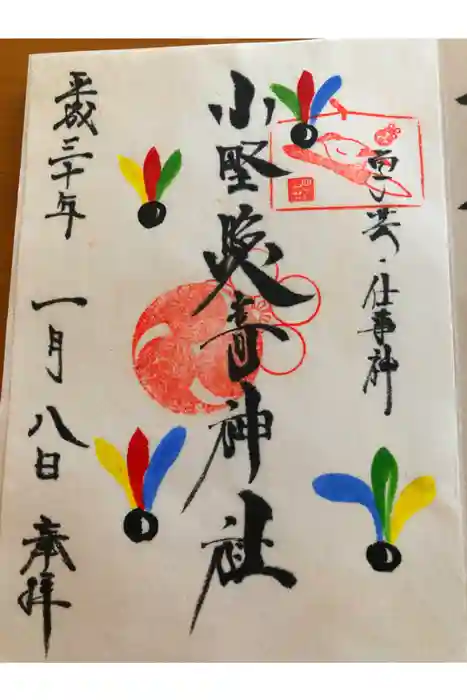 芸・仕事神
小野照崎神社
平成三十年 一月八日 奉拝